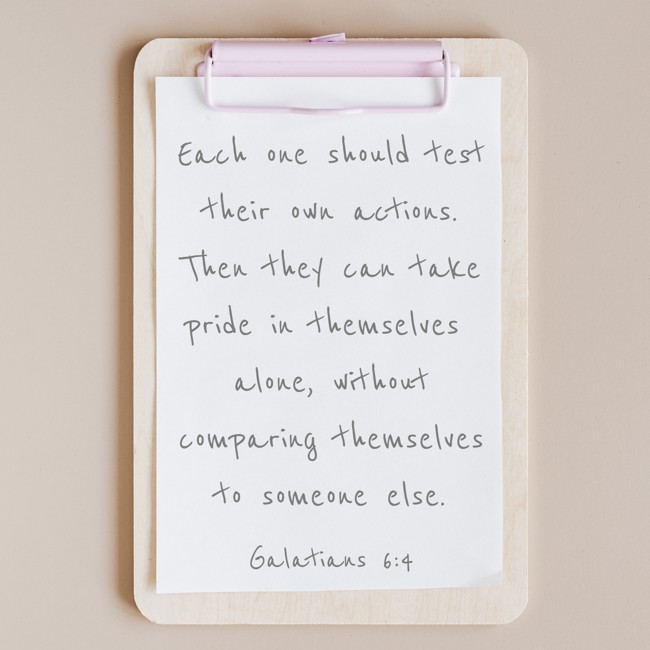 Each one should test
their own actions.
Then they can take
pride in themselves
alone, without
comparing themselves
to someone else.
Galatians 6:4